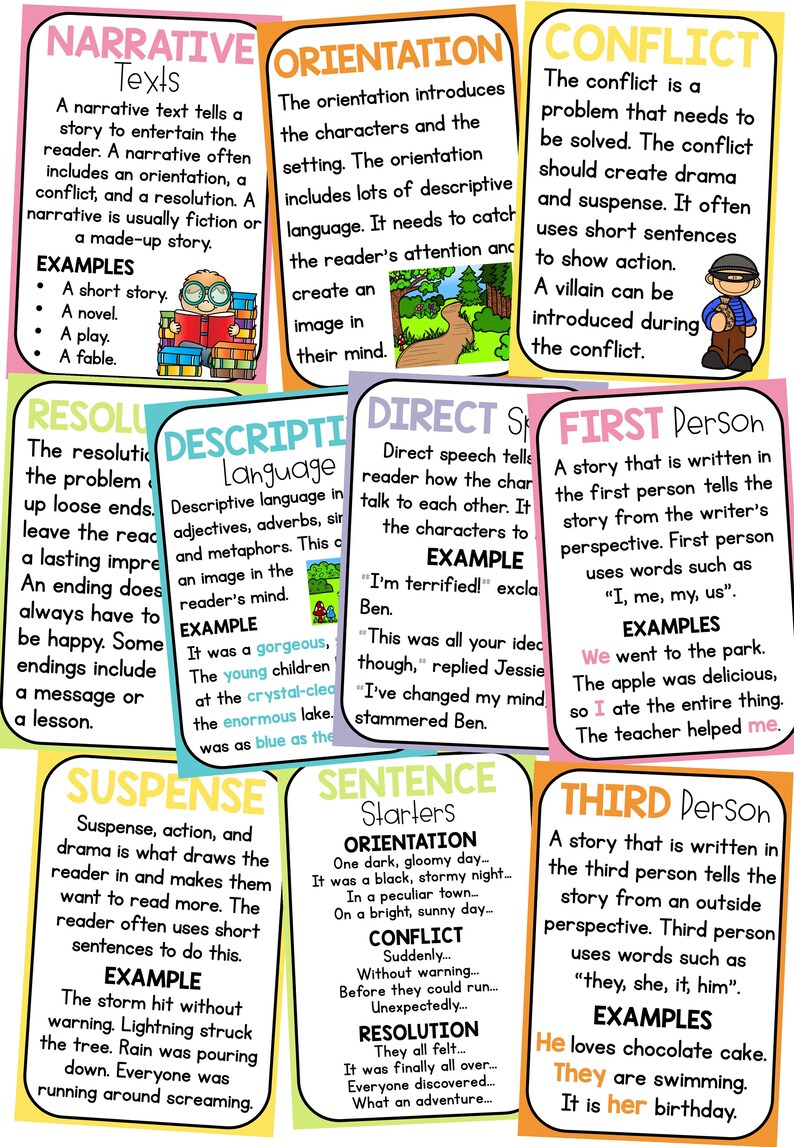 NARRATIVE
Texts
A narrative text tells a
story to entertain the
reader. A narrative often
includes an orientation, a
conflict, and a resolution. A
narrative is usually fiction or
a made-up story.
EXAMPLES
• A short story.
• A novel.
• A play.
• A fable.
ORIENTATION
The orientation introduces
the characters and the
setting. The orientation
includes lots of descriptive
language. It needs to catch
the reader's attention and
create an
image in
their mind.
CONFLICT
The conflict is a
problem that needs to
be solved. The conflict
should create drama
and suspense. It often
uses short sentences
to show action.
A villain can be
introduced during
the conflict.
RESOLU
The resolutio
the problem
up loose ends.
leave the read
a lasting impre
An ending does
always have to
be happy. Some
endings include
a message or
a lesson.
DESCRIPTI
Language
Descriptive language in
adjectives, adverbs, sim
and metaphors. This c
an image in the
reader's mind.
EXAMPLE
It was a gorgeous,
The young children
at the crystal-clea
the enormous lake.
was as blue as the
DIRECT Sp
Direct speech tells
reader how the char
talk to each other. It
the characters to
EXAMPLE
"I'm terrified!" excla
Ben.
"This was all your idea
though," replied Jessie
"I've changed my mind,
stammered Ben.
FIRST Person
A story that is written in
the first person tells the
story from the writer's
perspective. First person
uses words such as
"I, me, my, us".
EXAMPLES
We went to the park.
The apple was delicious,
so I ate the entire thing.
The teacher helped me.
SUSPENSE
Suspense, action, and
drama is what draws the
reader in and makes them
want to read more. The
reader often uses short
sentences to do this.
EXAMPLE
The storm hit without
warning. Lightning struck
the tree. Rain was pouring
down. Everyone was
running around screaming.
SENTENCE
Starters
ORIENTATION
One dark, gloomy day...
It was a black, stormy night...
In a peculiar town...
On a bright, sunny day...
CONFLICT
Suddenly...
Without warning...
Before they could run...
Unexpectedly...
RESOLUTION
They all felt...
It was finally all over...
Everyone discovered...
What an adventure...
THIRD Person
A story that is written in
the third person tells the
story from an outside
perspective. Third person
uses words such as
"they, she, it, him".
EXAMPLES
He loves chocolate cake.
They are swimming.
It is her birthday.